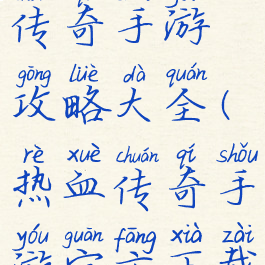 传奇手游
gōng lüè dà quán
攻略大全(
rè xuè chuán qí shǒu
热血传奇手
yóu guān fāng xià zài
游官方下载